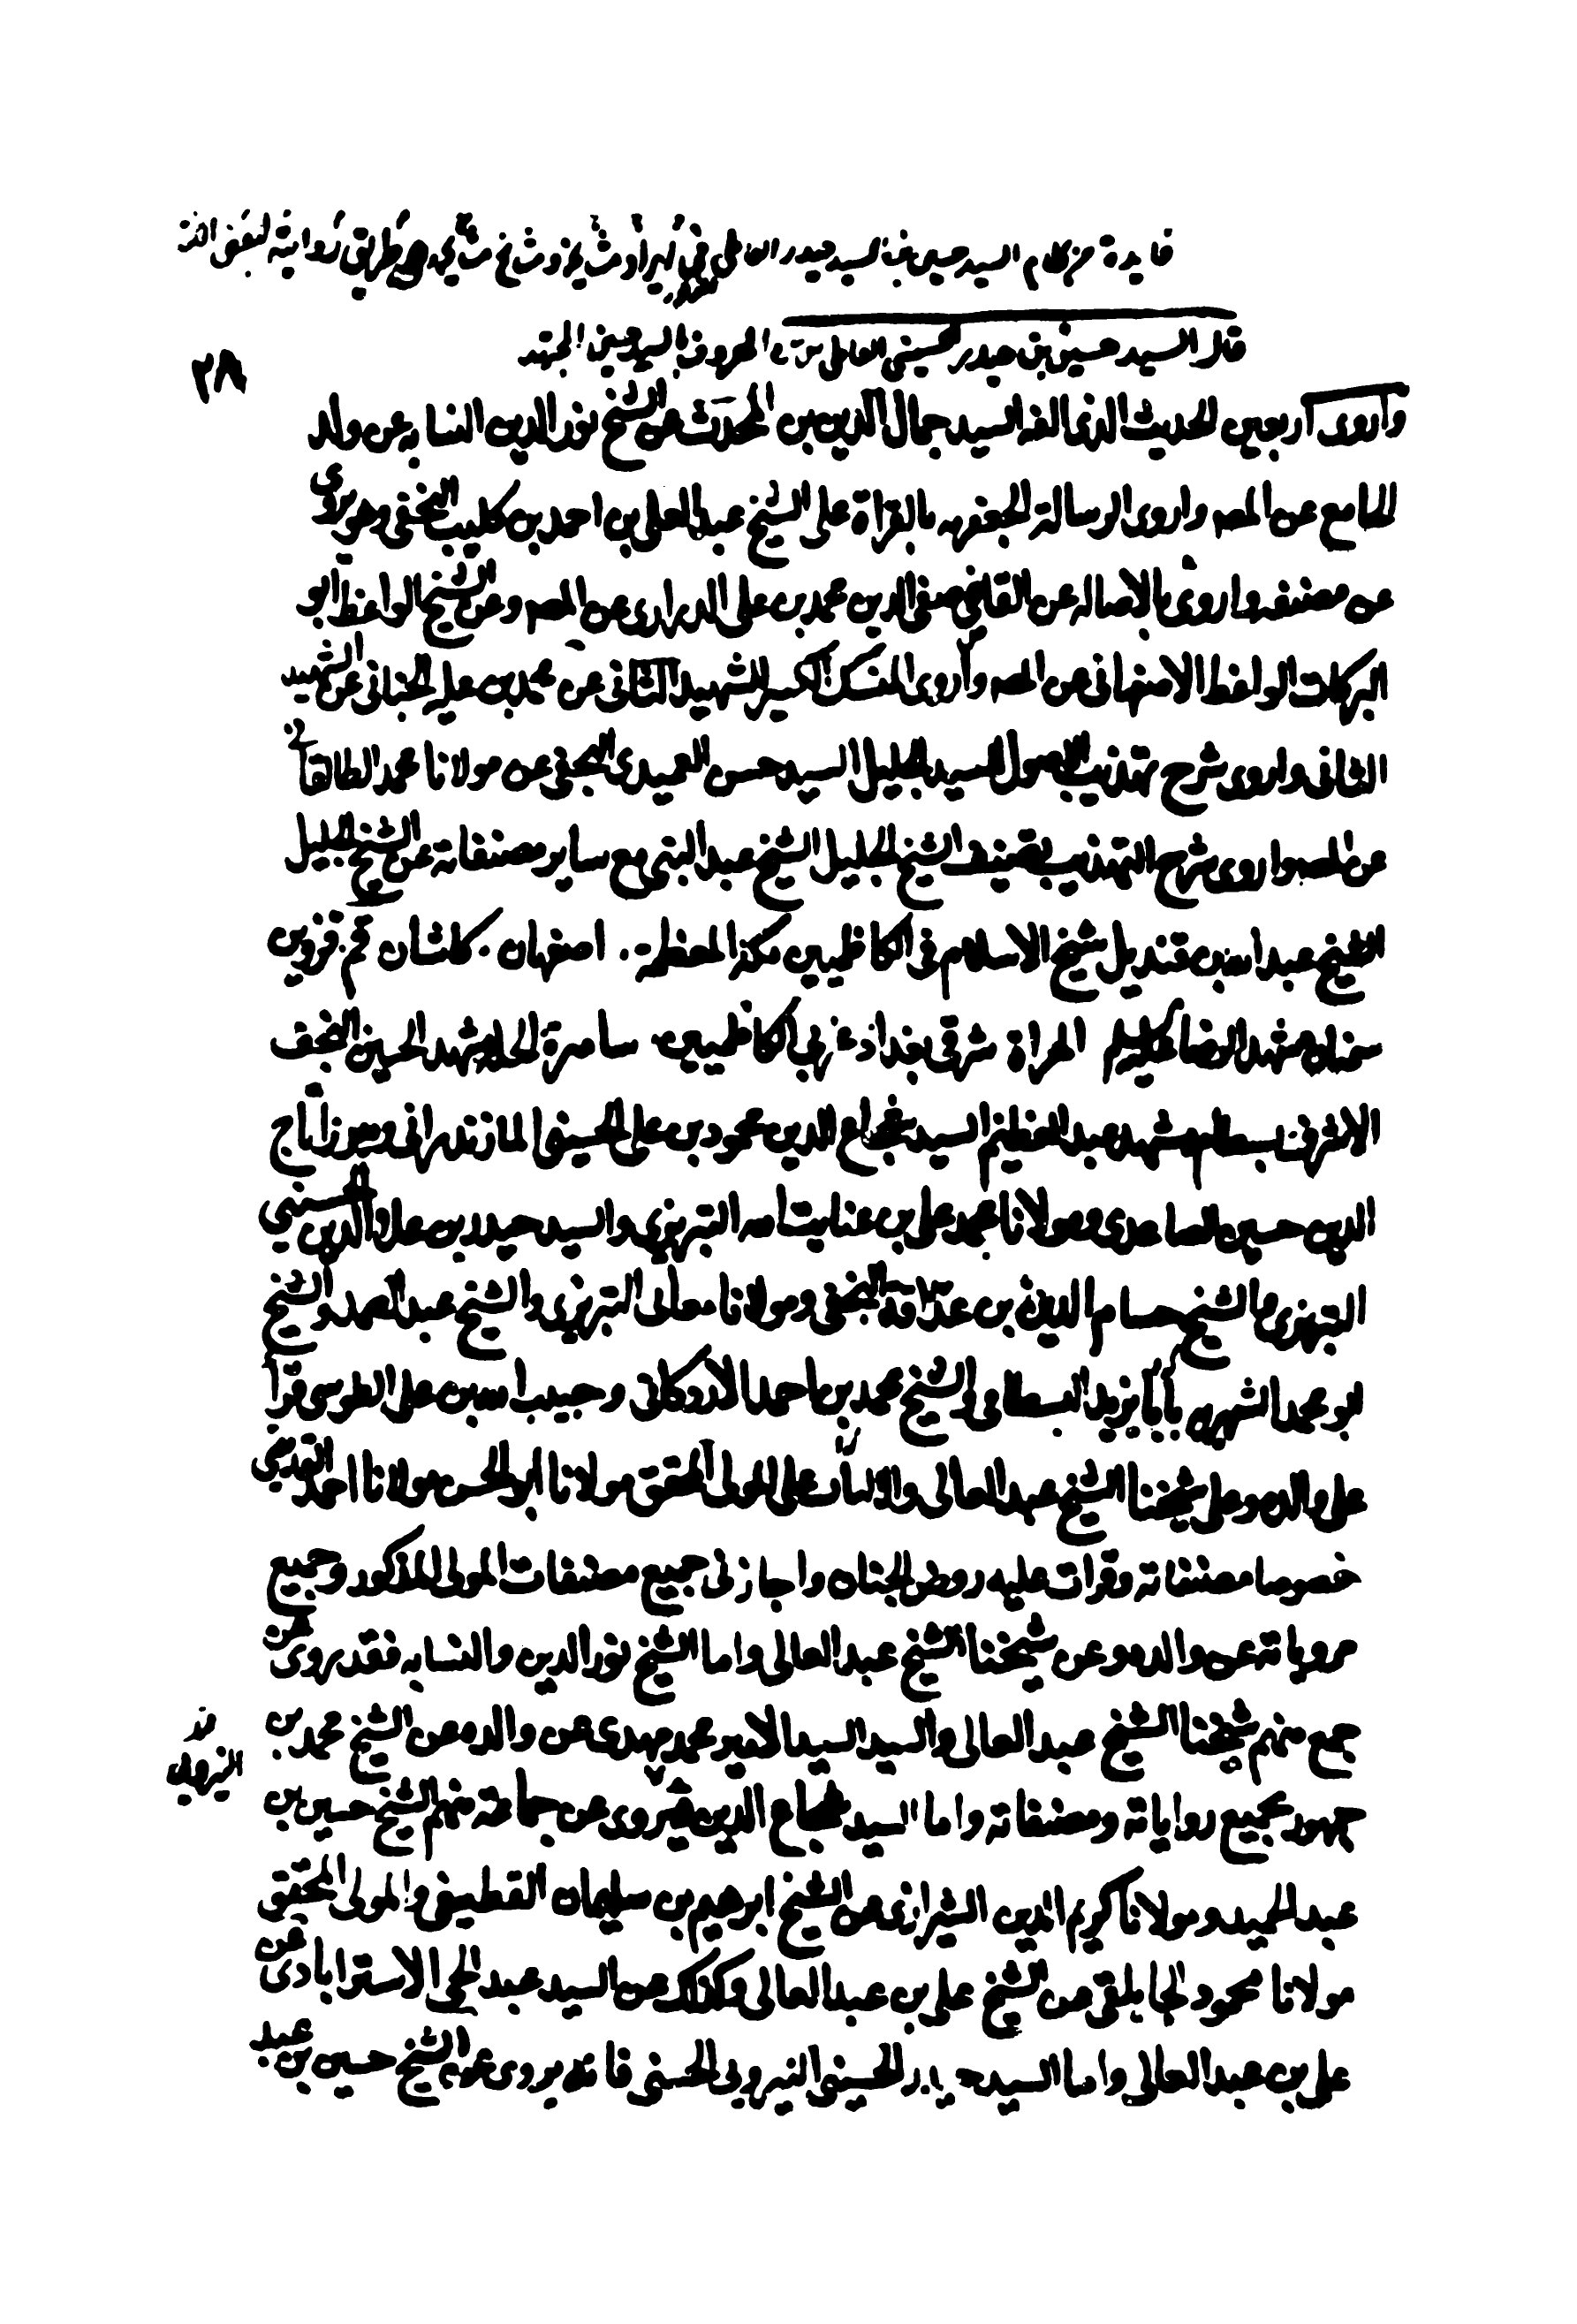 فايدة من كلام السيد حسين بن السيد حيدر العاملي في مشايخ طريق رواية لبعض
قال السيد حسين بن حيدر الحسيني العاملي المعروف بالسيد حسين المجتهد
٢٨
وأروى اربعين الحديث الذى الفه السيد جمال الدين بن المحدث عن الشيخ نور الدين النسابه عن ولد
الجامع عن المصه واروى الرسالة الجعفريه بالقراة على الشيخ عبد العلى بن احمد بن كليب النجفى وهو يروى
عن مصنفه واروى بالاصاله عن القاضى صفى الدين محمد بن على عن المصه وعن الشيخ الواعظ ابو
البركات الواعظ الاصفهانى عن المصه وأروى المنسك الكبير للشهيد الثانى عن محمد بن على عن الشهيد
الثانى واروى شرح تهذيب الاصول للسيد الجليل السيد حسن العميدى النجفى عن مولانا محمد
عن المصه واروى شرح التهذيب تصنيف الشيخ الجليل الشيخ عبد النبى مع ساير مصنفاته عن الشيخ الجليل
الشيخ عبد الله بن قنديل شيخ الاسلام فى الكاظميين مكة المعظمة . اصفهان . كاشان قم . قزوين
سمنان مشهد الرضا الهراة شرقى بغداد غربى الكاظميين سامرة الحله مشهد الحسين النجف
الاشرف بسطام مشهد عبد العظيم السيد شجاع الدين محمود بن على الحسينى المازندرانى وميرزا تاج
الدين حسين الصاعدى ومولانا محمد على بن عنايت الله التبريزى والسيد حيدر بن علاء الدين الحسينى
التبريزى والشيخ حسام الدين بن عذاقة النجفى ومولانا معانى التبريزى والشيخ عبد الصمد والشيخ
ابو محمد الشهير بأبايزيد البسطامى والشيخ محمد بن احمد الاردكانى وحبيب الله بن على الطوسى قرأ
على والده وعلى شيخنا الشيخ عبد العالى على المولى المحقق مولانا ابو الحسن مولانا احمد
خصوصا مصنفاته وقرات عليه روض الجنان واجاز لى جميع مصنفات المولى المذكور وجميع
مروياته عن والده وعن شيخنا الشيخ عبد العالى واما الشيخ نور الدين والنسابه فقد يروى عن
جمع منهم شيخنا الشيخ عبد العالى والسيد السيد الامير محمد مهدى عن والده عن الشيخ محمد بن
جمهور بجميع رواياته ومصنفاته واما السيد شجاع الدين فيروى عن جماعة منهم الشيخ حسين بن
عبد الحميد ومولانا كريم الدين الشيرازى عن الشيخ ابرهيم بن سليمان القطيفى والمولى المحقق
مولانا محمود الجابلقى عن الشيخ على بن عبد العالى وكذلك عن السيد عبد الحى الاسترابادى عن
على بن عبد العالى واما السيد حيدر الحسينى الحسنى فانه يروى عن الشيخ حسين بن عبد